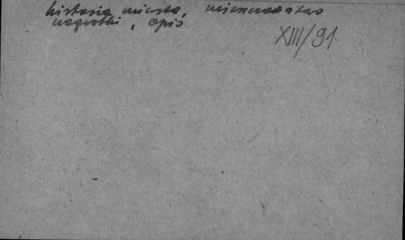 historia miasta, mieszczaństwo
nagrobki, opis
XIII/91